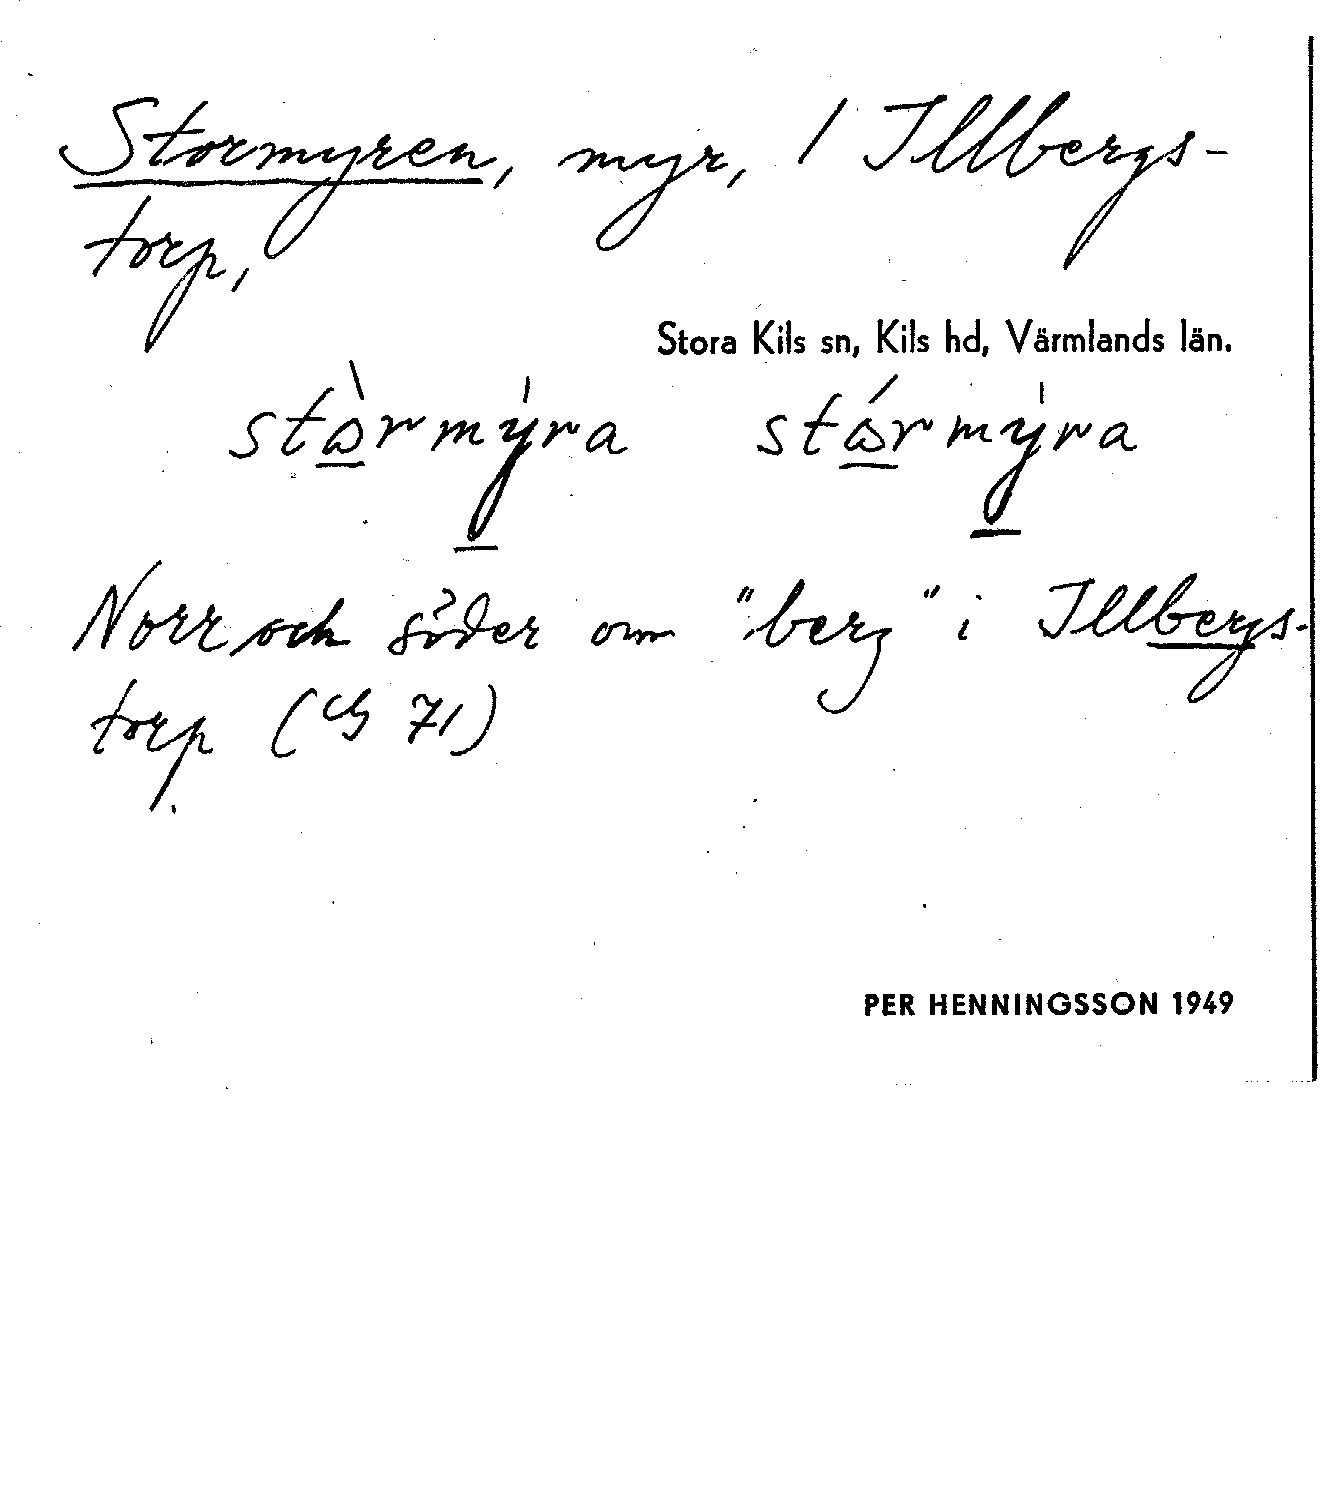 Stormyren, myr, 1 Illbergs-
torp,
Stora Kils sn, Kils hd, Värmlands län.
stòrmýra stórmýra
Norr och söder om "berg" i Illbergs-
torp ( 71)
PER HENNINGSSON 1949